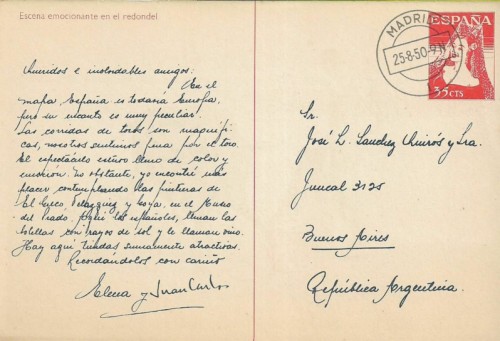 Escena emocionante en el redondel
Queridos e inolvidables amigos:
En el
mapa, España es todavía Europa,
pero su encanto es muy peculiar.
Las corridas de toros son magnífi-
cas, nosotros sentimos pena por el toro.
El espectáculo estuvo lleno de color y
emoción. No obstante, yo encontré más
placer, contemplando las pinturas de
El Greco, Velázquez y Goya, en el Museo
del Prado. Aquí los españoles, llenan las
botellas con rayos de sol y le llaman vino.
Hay aquí tiendas sumamente atractivas.
Recordándolos con cariño
Elena y Juan Carlos
MADRID
25·8·50·9
ESPAÑA
35 CTS
Sr.
José L. Sanchez Quirós y Sra.
Juncal 3125
Buenos Aires
República Argentina.